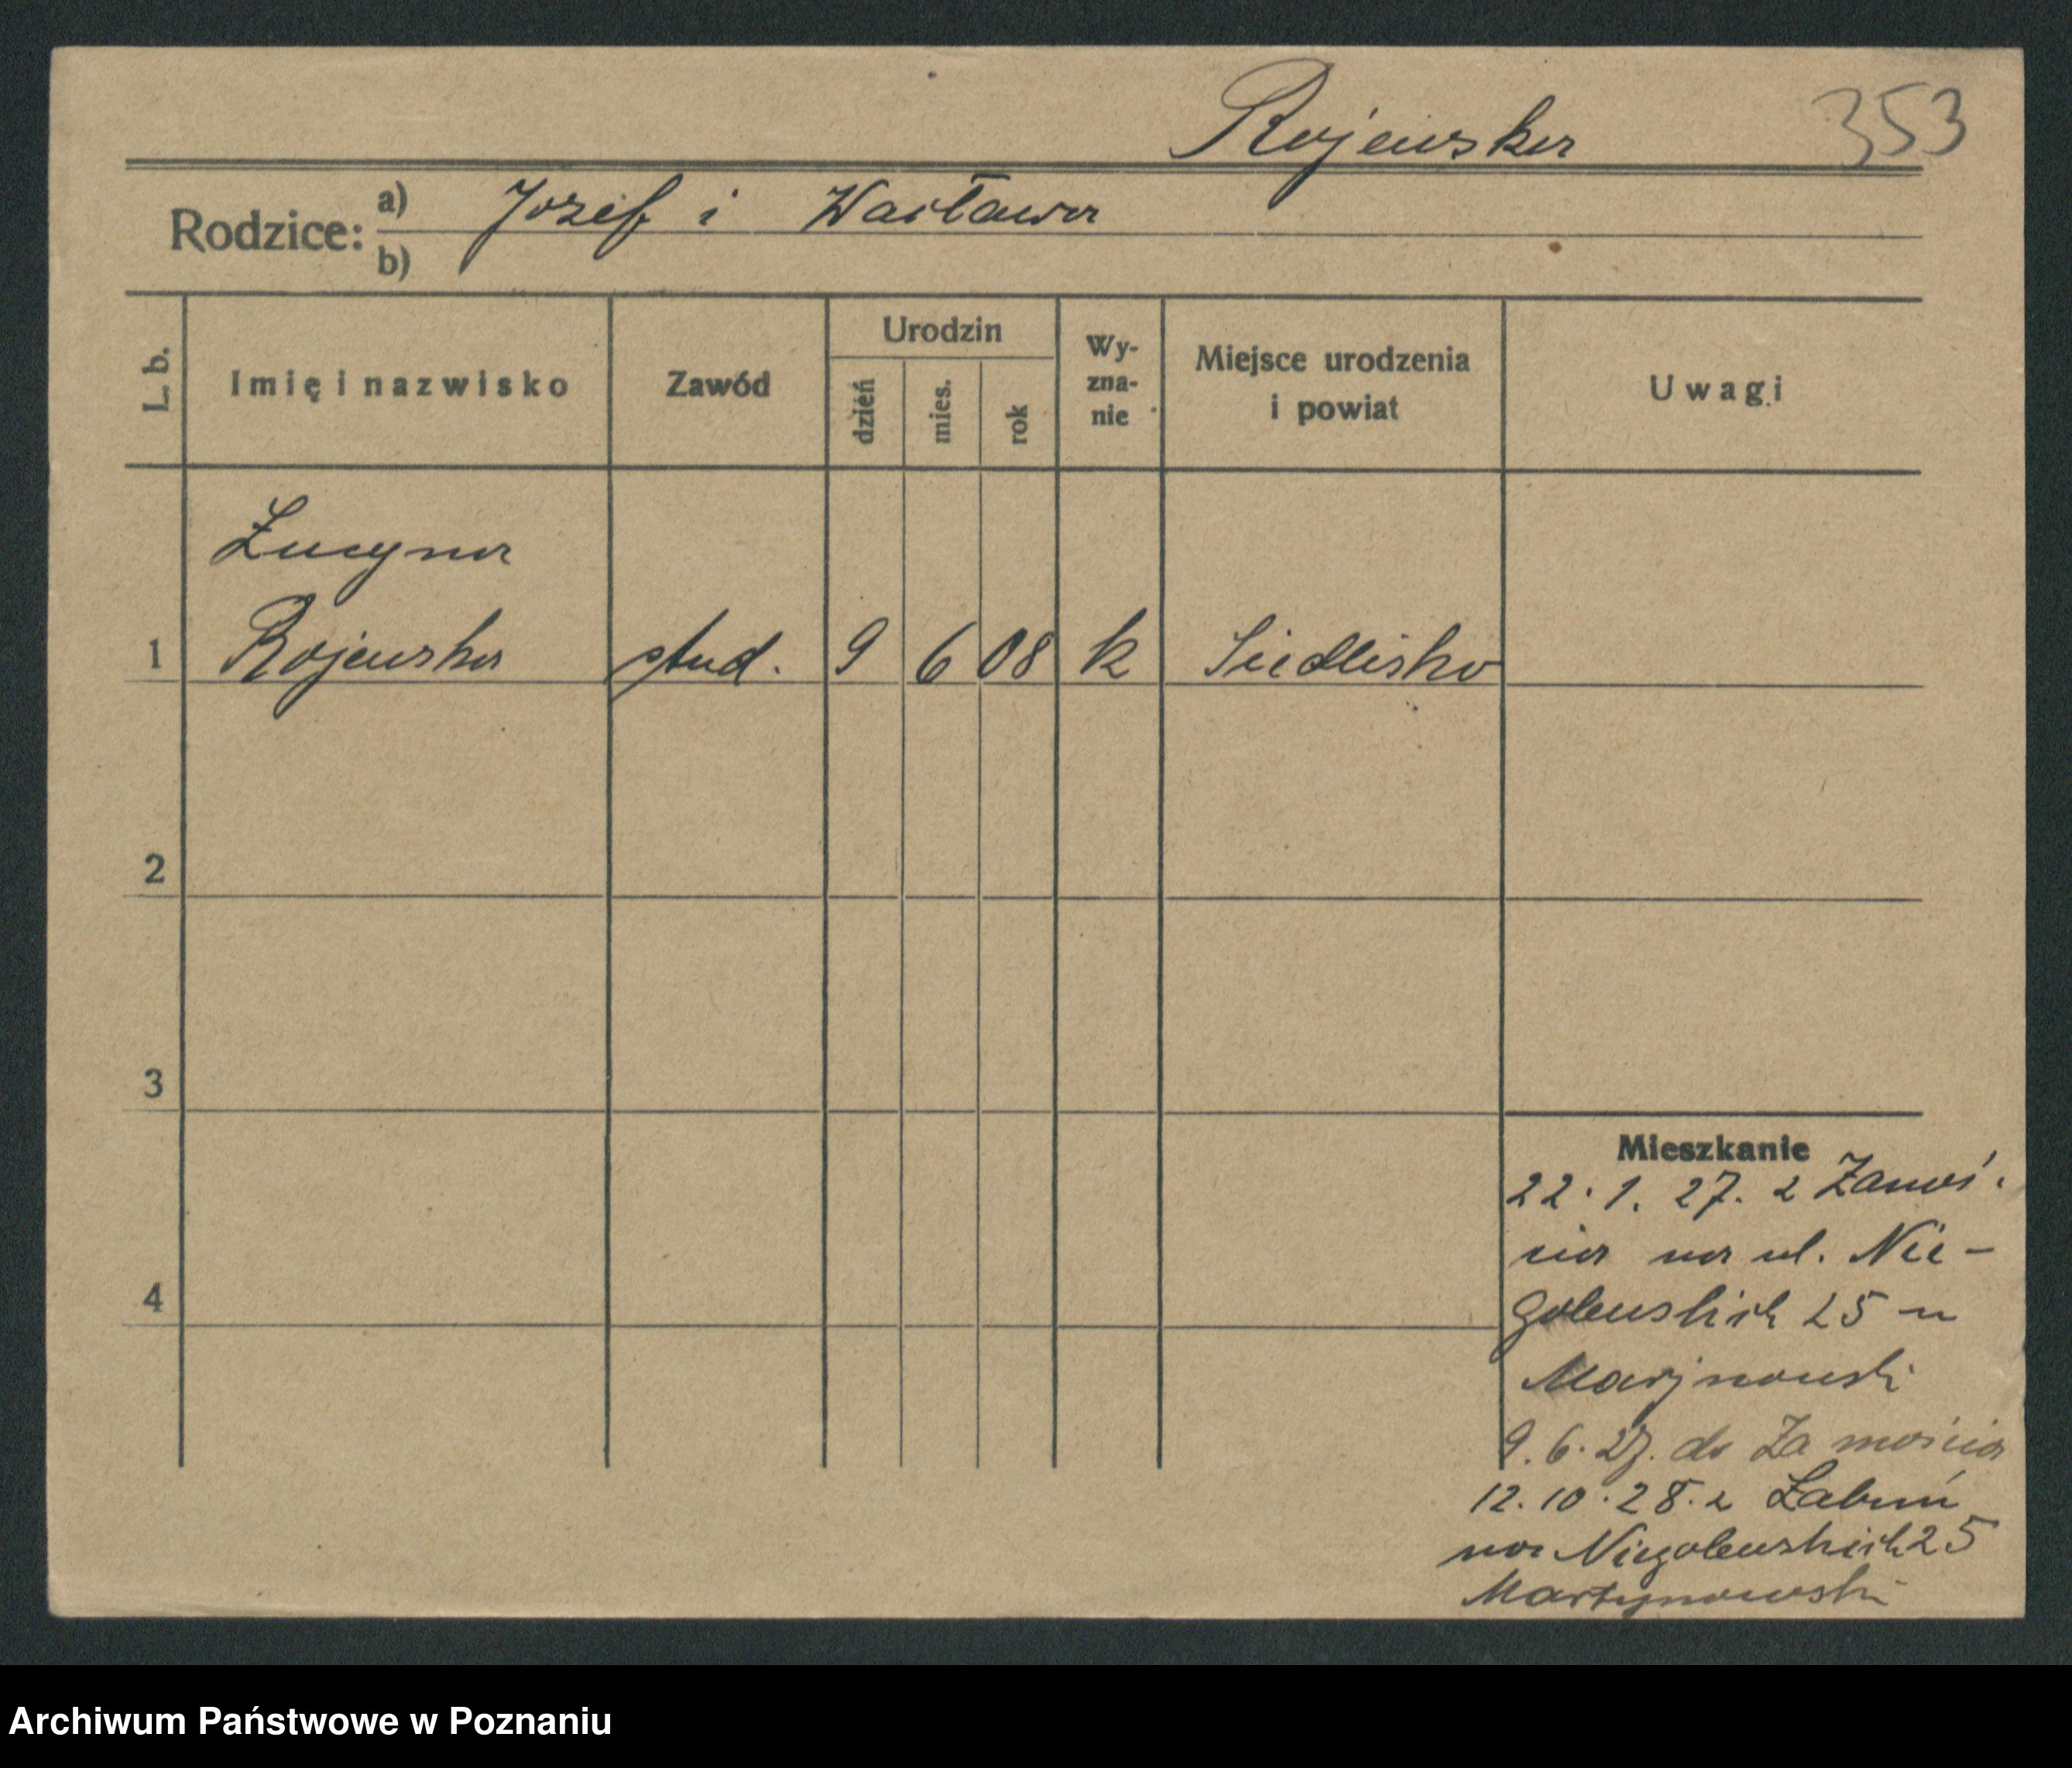 Rojewska 353
Rodzice: a) Józef i Wacława
b)
L. b. Imię i nazwisko Zawód Urodzin dzień mies. rok Wy-zna-nie Miejsce urodzenia i powiat Uwagi
Lucyna
1 Rojewska stud. 9 6 08 k Siedlisko
2
3
Mieszkanie
22. 1. 27. z Zamoś-
cia na ul. Nie-
4
golewskich 25 u
9. 6. 27. do Zamościa
12. 10. 28. z Łabuń
na Niegolewskich 25
Martynowski
Archiwum Państwowe w Poznaniu